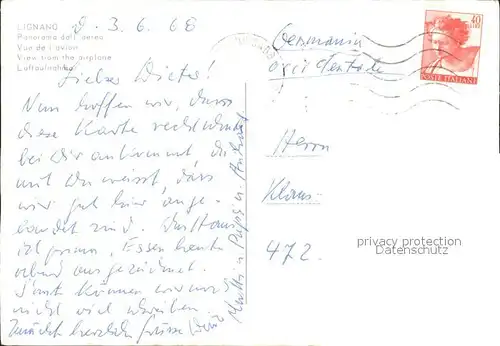 LIGNANO
Panorama dall'aereo
Vue de l'avion
View from the airplane
Luftaufnahme
d. 3.6.68
Lieber Dieter!
Nun hoffen wir, dass
diese Karte rechtzeitig
bei Dir ankommt, da
mit Du weisst, dass
wir gut hier ange-
landet sind. Das Haus
ist prima, Essen heute
abend ausgezeichnet.
Sonst können wir noch
nicht viel schreiben.
herzliche Grüsse
Mutti u. Papi u.
Germania
40
POSTE ITALIANE
Herrn
Klaus
472.
privacy protection
Datenschutz